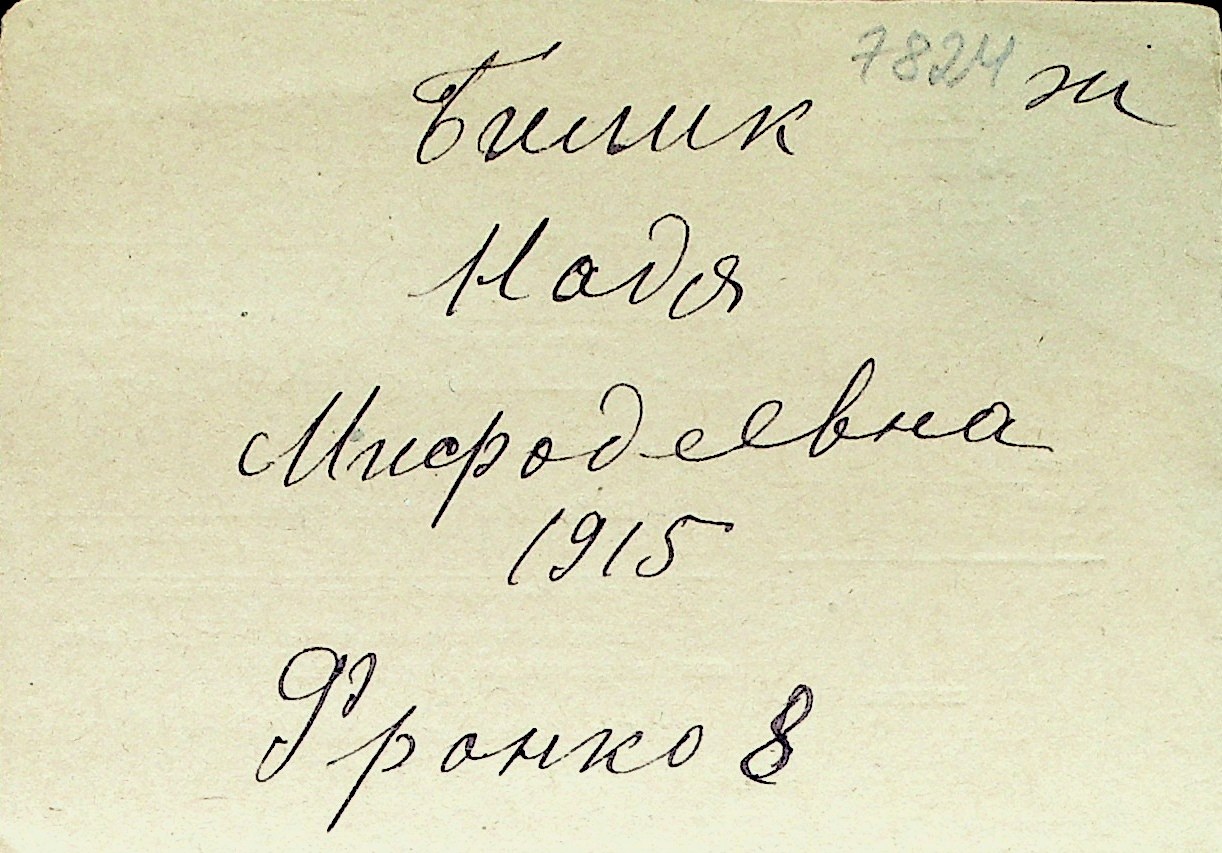 7824 ж
Билик
Надя
Мифодеевна
1915
Франко 8